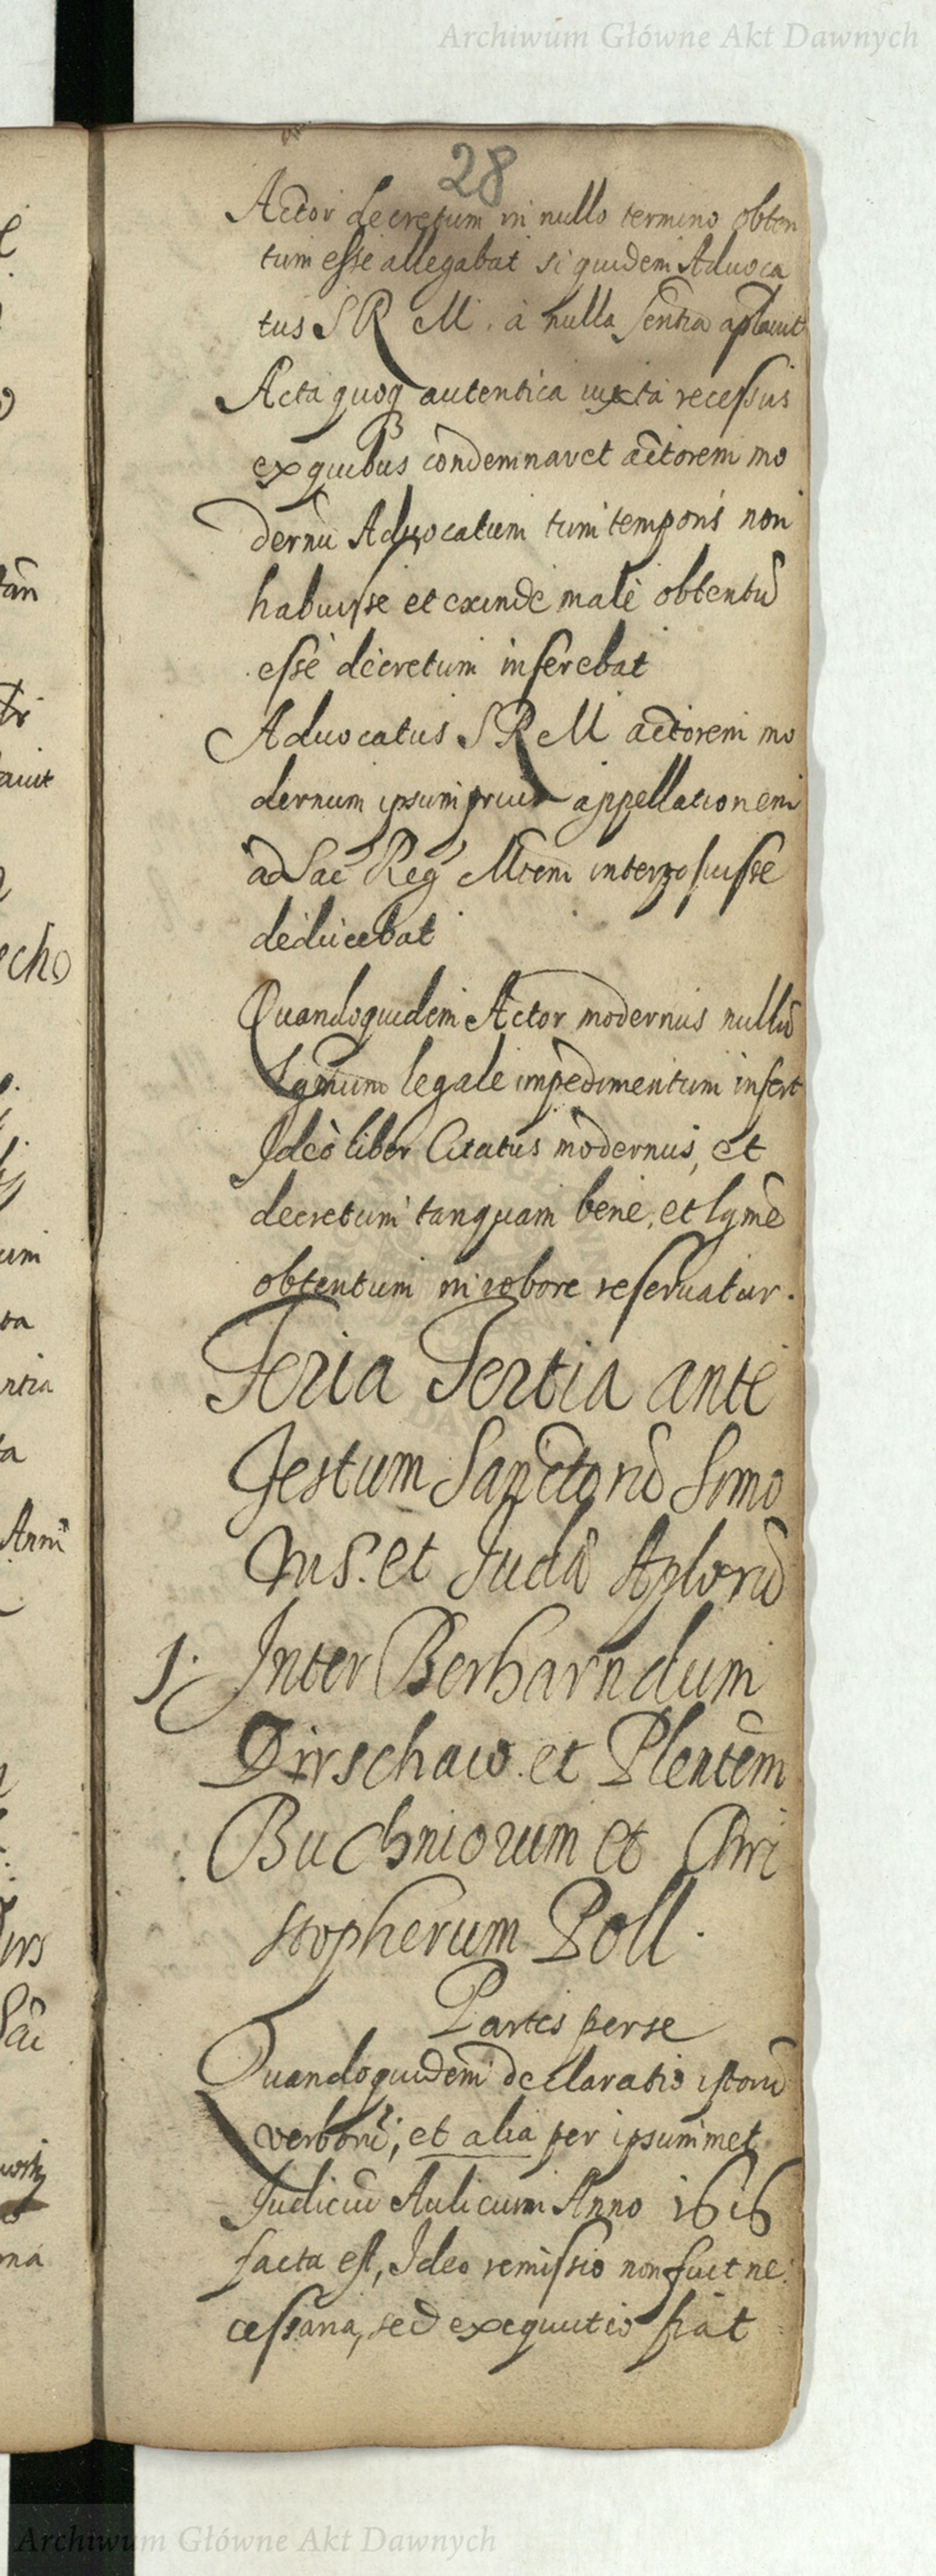 Archiwum Główne Akt Dawnych
28
Actor decretum in nullo termino obten
tum esse allegabat siquidem Aduoca
tus S R M. à nulla sentia aplauit
Acta quoq autentica iuxta recessus
ex quibus condemnauet actorem mo
dernũ Aduocatum tum temporis non
habuisse et exinde malè obtentũ
esse decretum inferebat
Aduocatus S R M actorem mo
dernum ipsum appellationem
ad Sac Reg Mtem interposuisse
deducebat
Quandoquidem Actor modernus nullũ
lgmum legale impedimentum infert
Ideò liber Citatus modernus, et
decretum tanquam bene, et lgmẽ
obtentum in robore reseruatur.
Feria Tertia ante
Festum Sanctorũ Simo
nis. et Juda Aplorũ
1. Inter Berharndum
Dirschaw et Plentem
Buchniorum et Chri
stopherum Poll.
Partes per se
Quandoquidem declaratio istorũ
verborũ, et alia per ipsummet
Judiciũ Aulicum Anno 1616
facta est, Ideo remissio non fuit ne
cessaria, sed exequutio fiat
Archiwum Główne Akt Dawnych